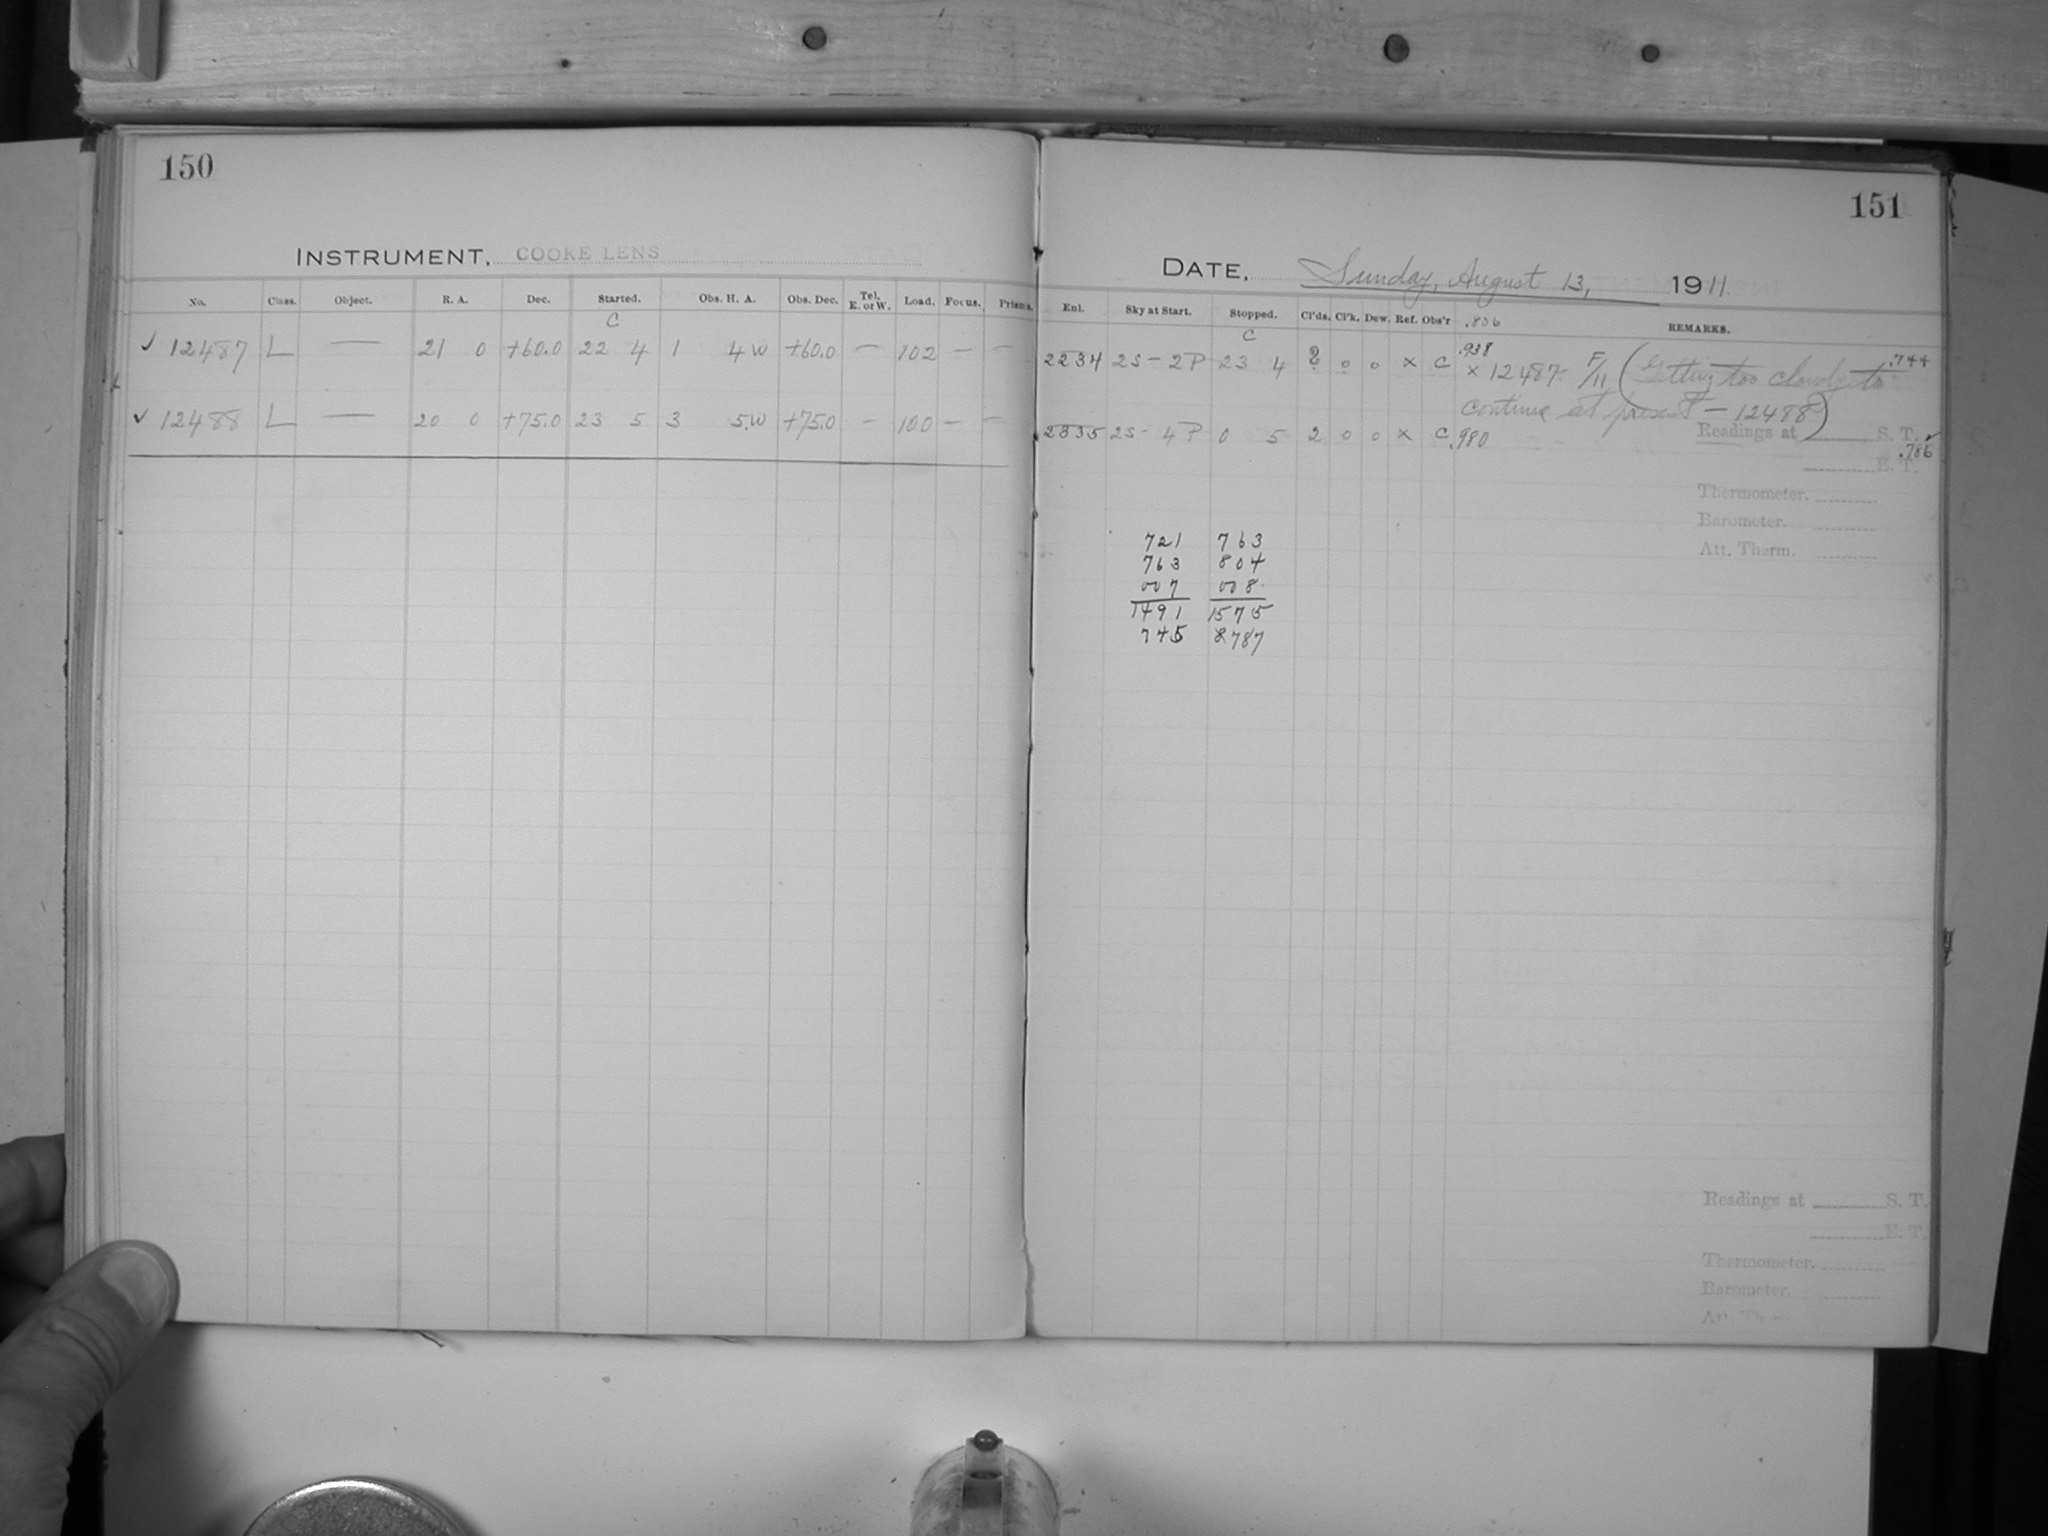 150
INSTRUMENT. COOKE LENS
No. Class. Object. R. A. Dec. Started. Obs. H. A. Obs. Dec. Tel. E. or W. Load. Focus. Prisms.
C
✓ 12487 L — 21 0 +60.0 22 4 1 4 W +60.0 — 102 — —
✓ 12488 L — 20 0 +75.0 23 5 3 5.W +75.0 — 100 — —
151
DATE. Sunday, August 13, 1911.
Enl. Sky at Start. Stopped. Cl'ds. Cl'k. Dew. Ref. Obs'r .806 REMARKS.
C
2234 2S – 2P 23 4 2 0 0 x C .938 x 12487 F/11 (Getting too cloudy to .744
continue at present – 12488)
2335 2S – 4P 0 5 2 0 0 x C .980
Readings at S. T.
.786
E. T.
Thermometer.
Barometer.
Att. Therm.
721 763
763 804
007 008
1491 1575
745 8787
Readings at S. T.
E. T.
Thermometer.
Barometer.